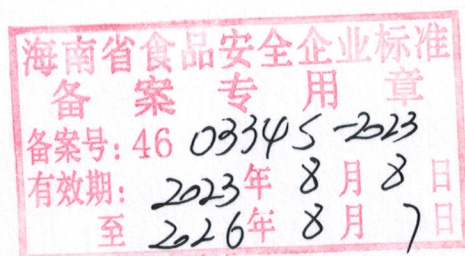 海南省食品安全企业标准
备案专用章
备案号：46 0334S-2023
有效期：2023年8月8日
至2026年8月7日